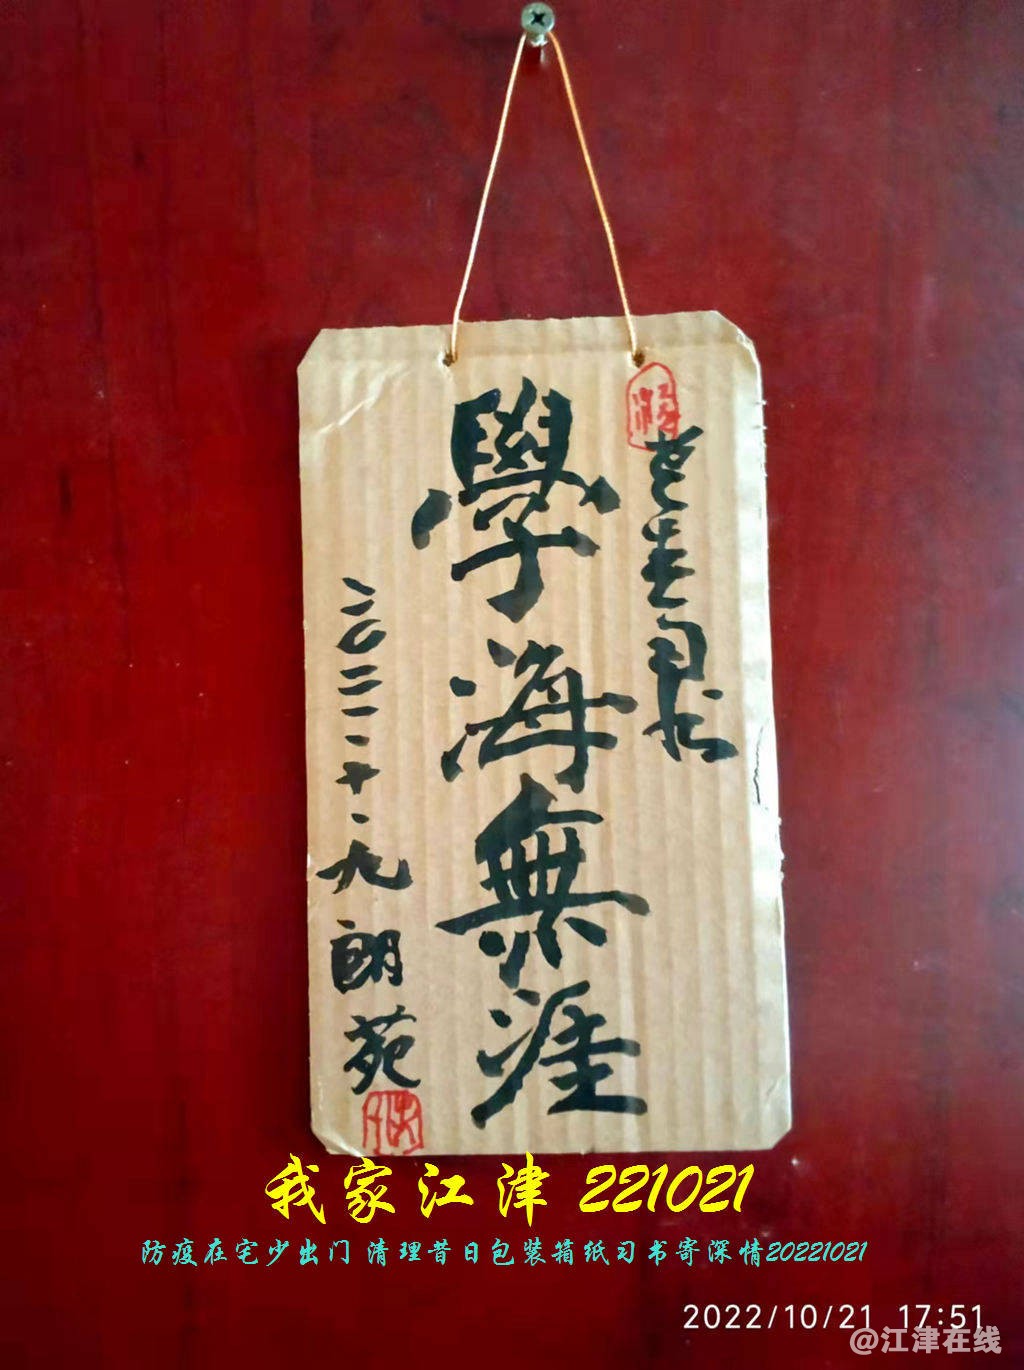 學海無涯
二〇二二·十·九
朗苑
我家江津 221021
防疫在宅少出门 清理昔日包装箱纸习书寄深情20221021
2022/10/21 17:51
@江津在线